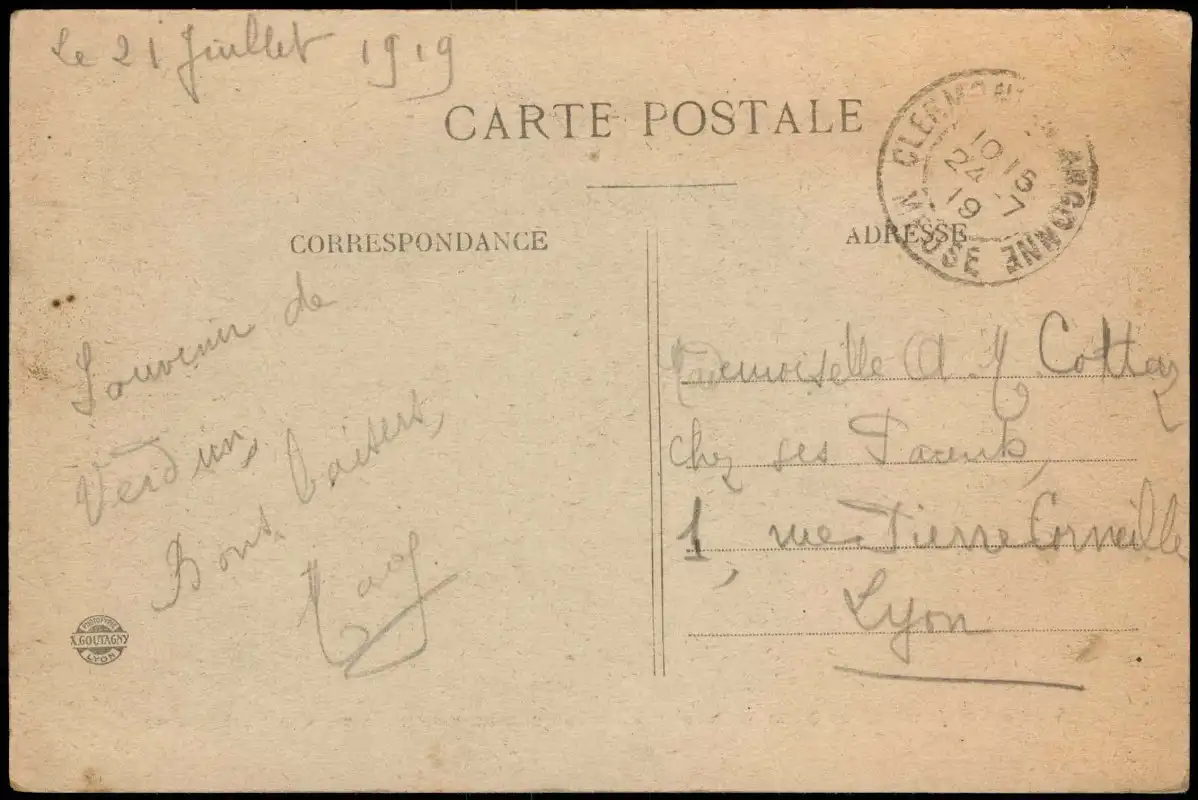 Le 21 Juillet 1919
CARTE POSTALE
CLERMONT EN ARGONNE
10 15
24 7
19
MEUSE
CORRESPONDANCE
ADRESSE
Souvenir de
Verdun,
Bons baisers,
Mademoiselle A M Cottaz
chez ses Parents,
1, rue Pierre Corneille
Lyon
PHOTOTYPIE
X. GOUTAGNY
LYON